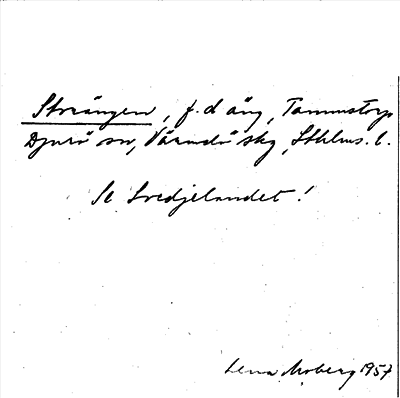 Strängen, f.d äng, Tammstorp
Djurö sn, Värmdö skg, Sthlms. l.
Se Svedjelandet!
Lena Moberg 1957